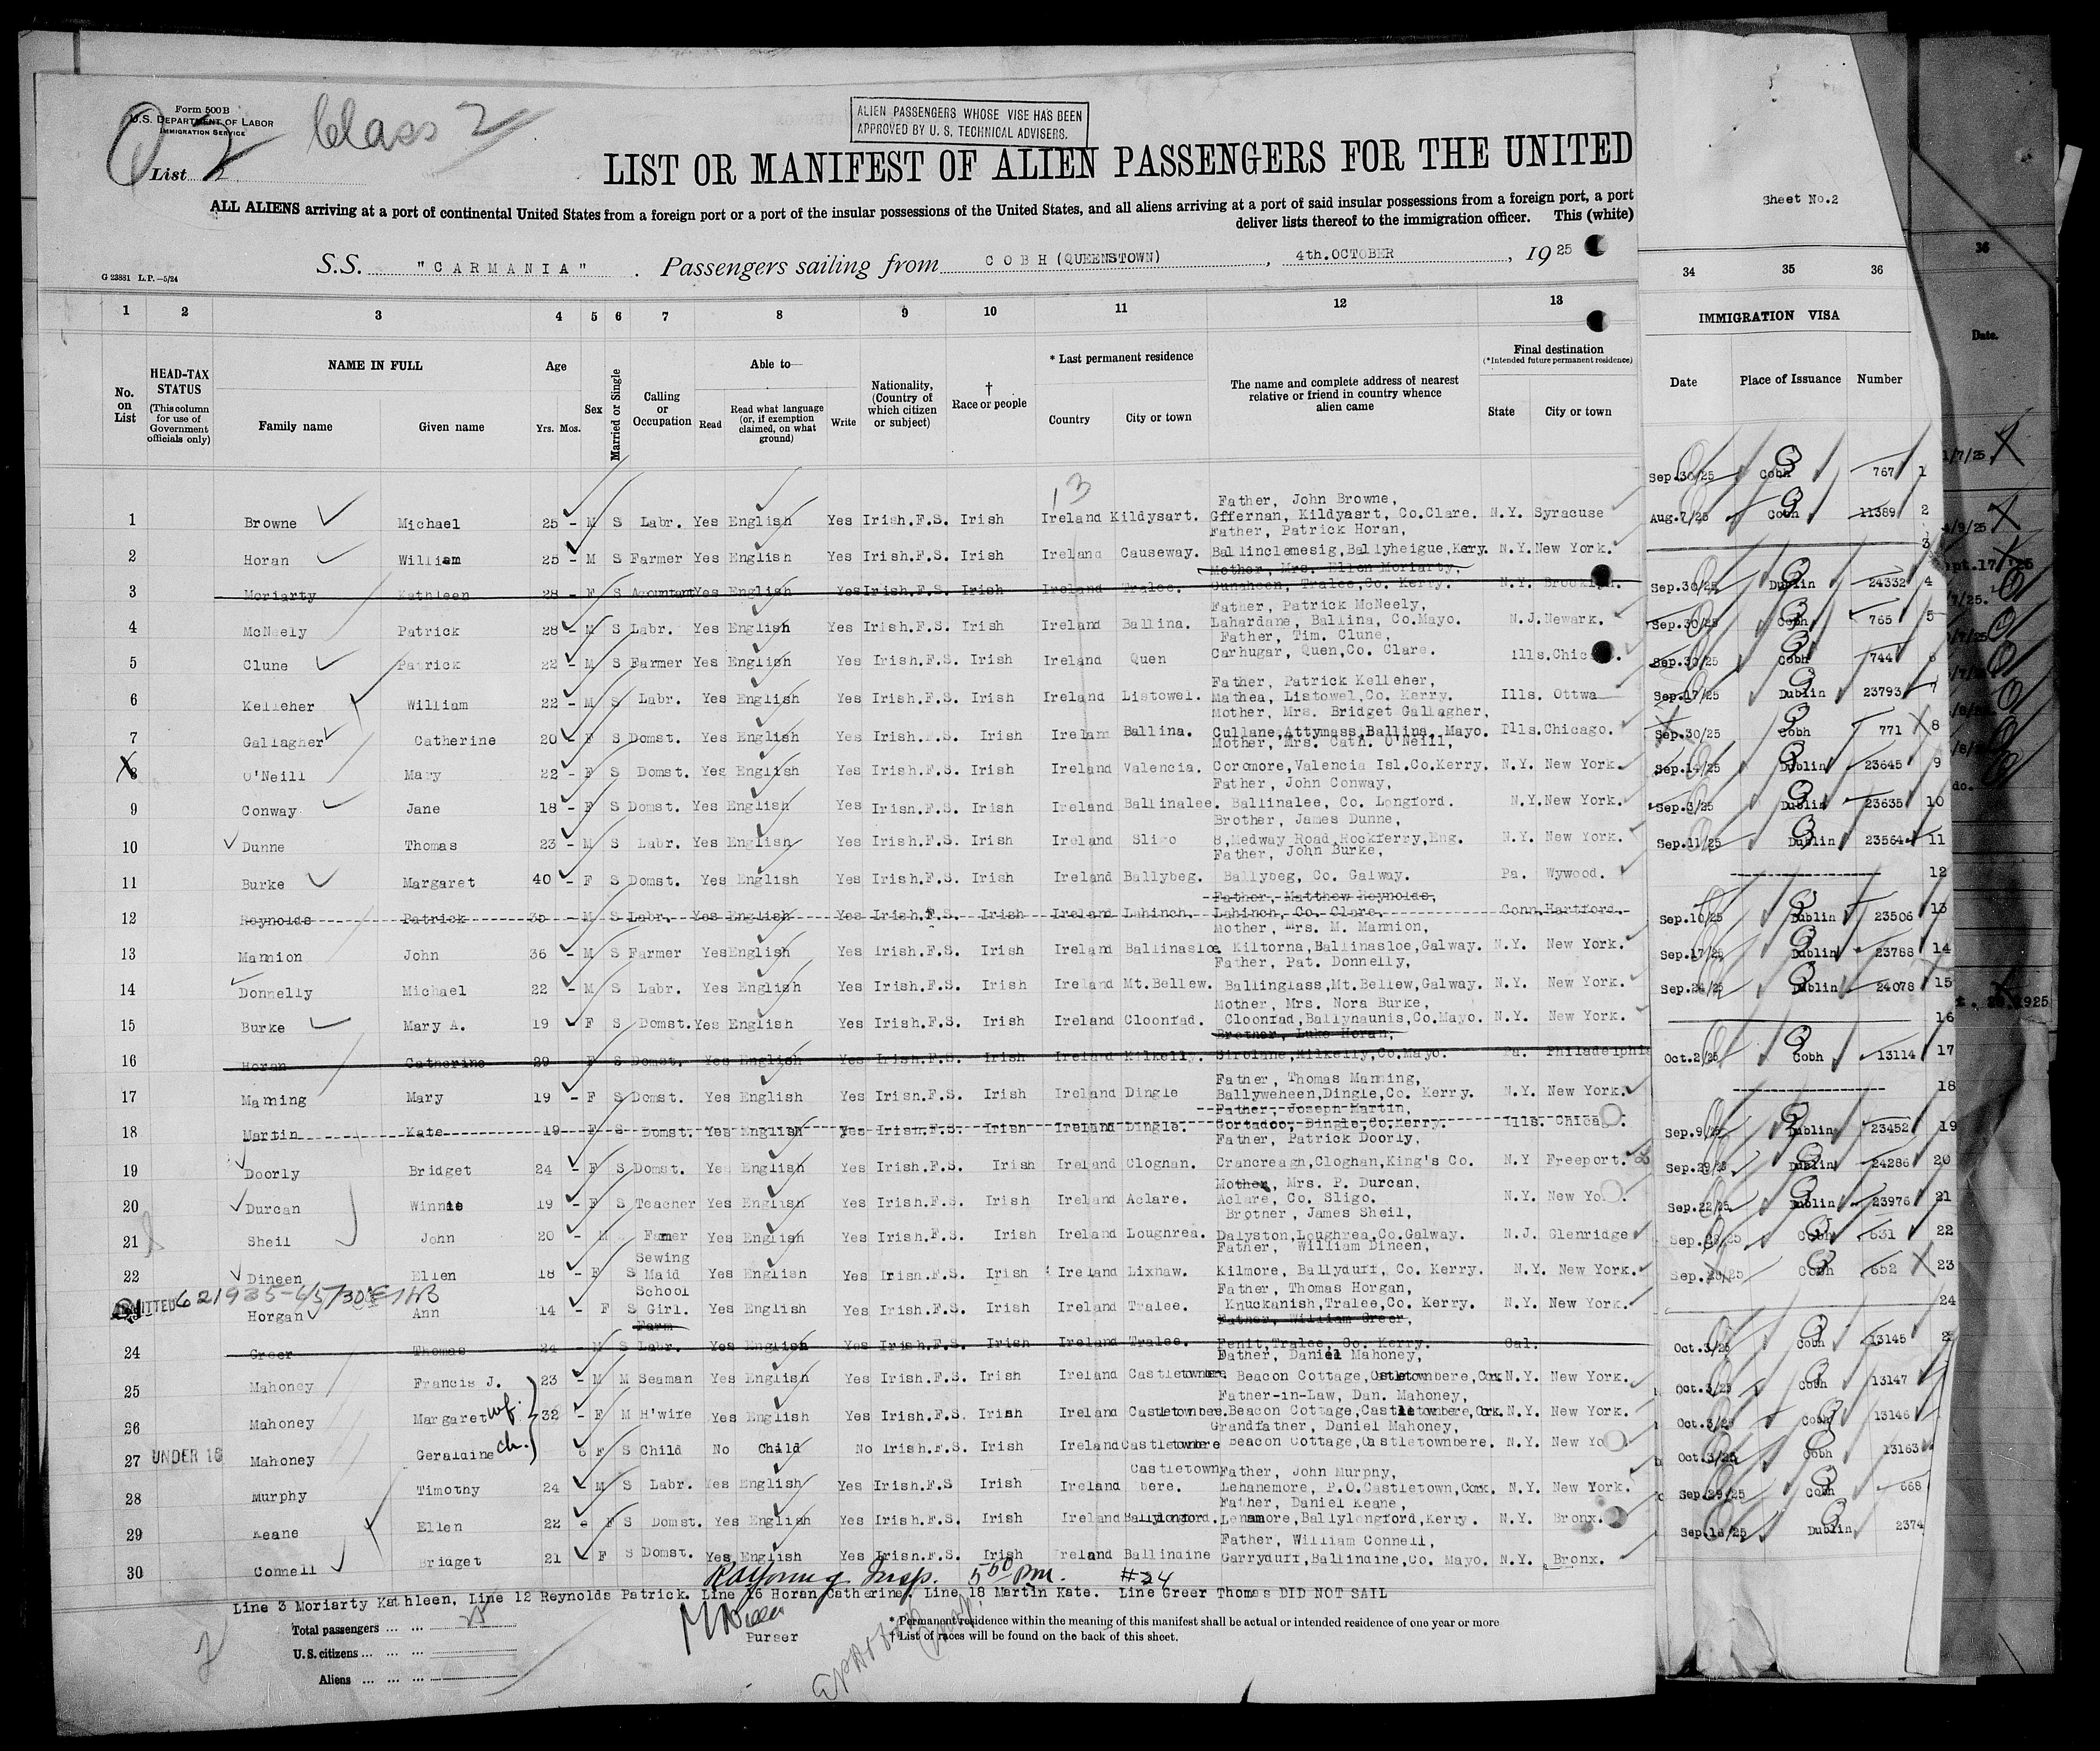 Form 500B
U.S. DEPARTMENT OF LABOR
IMMIGRATION SERVICE
List 2
Class 2
ALIEN PASSENGERS WHOSE VISE HAS BEEN
APPROVED BY U. S. TECHNICAL ADVISERS.
LIST OR MANIFEST OF ALIEN PASSENGERS FOR THE UNITED
ALL ALIENS arriving at a port of continental United States from a foreign port or a port of the insular possessions of the United States, and all aliens arriving at a port of said insular possessions from a foreign port, a port
deliver lists thereof to the immigration officer. This (white)
G 23881 L.P.—5/24
S.S. "CARMANIA". Passengers sailing from COBH (QUEENSTOWN), 4th.OCTOBER, 1925
Sheet No.2
1 2 3 4 5 6 7 8 9 10 11 12 13 34 35 36
No. on List
HEAD-TAX STATUS (This column for use of Government officials only)
NAME IN FULL
Family name Given name
Age
Yrs. Mos.
Sex
Married or Single
Calling or Occupation
Able to—
Read
Read what language (or, if exemption claimed, on what ground)
Write
Nationality, (Country of which citizen or subject)
† Race or people
* Last permanent residence
Country City or town
The name and complete address of nearest relative or friend in country whence alien came
Final destination
(*Intended future permanent residence)
State City or town
IMMIGRATION VISA
Date Place of Issuance Number
13
1 Browne Michael 25 - M S Labr. Yes English Yes Irish.F.S. Irish Ireland Kildysart. Father, John Browne, Gffernan, Kildyasrt, Co.Clare. N.Y. Syracuse Sep.30/25 Cobh 767 1
2 Horan William 25 - M S Farmer Yes English Yes Irish.F.S. Irish Ireland Causeway. Father, Patrick Horan, Ballinclemesig,Ballyheigue,Kerry. N.Y. New York. Aug.7/25 Cobh 11389 2
3 Moriarty Kathleen 28 - F S Acountant Yes English Yes Irish.F.S. Irish Ireland Tralee. Mother, Mrs. Ellen Moriarty, Gunsheen, Tralee,Co. Kerry. N.Y. Brooklyn. 3
4 McNeely Patrick 28 - M S Labr. Yes English Yes Irish.F.S. Irish Ireland Ballina. Father, Patrick McNeely, Lahardane, Ballina, Co.Mayo. N.J. Newark. Sep.30/25 Dublin 24332 4
5 Clune Patrick 22 - M S Farmer Yes English Yes Irish.F.S. Irish Ireland Quen Father, Tim. Clune, Carhugar, Quen,Co. Clare. Ills. Sep.30/25 Cobh 765 5
6 Kelleher William 22 - M S Labr. Yes English Yes Irish.F.S. Irish Ireland Listowel. Father, Patrick Kelleher, Mathea, Listowel,Co. Kerry. Ills. Ottwa Sep.30/25 Cobh 744 6
7 Gallagher Catherine 20 - F S Domst. Yes English Yes Irish.F.S. Irish Ireland Ballina. Mother, Mrs. Bridget Gallagher, Cullane,Attymass,Ballina, Mayo. Ills. Chicago. Sep.17/25 Dublin 23793 7
8 O'Neill Mary 22 - F S Domst. Yes English Yes Irish.F.S. Irish Ireland Valencia. Mother, Mrs. Cath. O'Neill, Coromore,Valencia Isl.Co.Kerry. N.Y. New York. Sep.30/25 Cobh 771 8
9 Conway Jane 18 - F S Domst. Yes English Yes Irish.F.S. Irish Ireland Ballinalee. Father, John Conway, Ballinalee, Co. Longford. N.Y. New York. Sep.14/25 Dublin 23645 9
10 Dunne Thomas 23 - M S Labr. Yes English Yes Irish.F.S. Irish Ireland Sligo Brother, James Dunne, 8,Medway Road,Rockferry,Eng. N.Y. New York. Sep.3/25 Dublin 23635 10
11 Burke Margaret 40 - F S Domst. Yes English Yes Irish.F.S. Irish Ireland Ballybeg. Father, John Burke, Ballybeg, Co. Galway. Pa. Wywood. Sep.11/25 Dublin 23564 11
12 Reynolds Patrick 35 - M S Labr. Yes English Yes Irish.F.S. Irish Ireland Lahinch. Father, Matthew Reynolds, Lahinch, Co. Clare. Conn. Hartford. 12
13 Mannion John 36 - M S Farmer Yes English Yes Irish.F.S. Irish Ireland Ballinasloe Mother, Mrs. M. Mannion, Kiltorna,Ballinasloe,Galway. N.Y. New York. Sep.10/25 Dublin 23506 13
14 Donnelly Michael 22 - M S Labr. Yes English Yes Irish.F.S. Irish Ireland Mt.Bellew. Father, Pat. Donnelly, Ballinglass,Mt.Bellew,Galway. N.Y. New York. Sep.17/25 Dublin 23788 14
15 Burke Mary A. 19 - F S Domst. Yes English Yes Irish.F.S. Irish Ireland Cloonfad. Mother, Mrs. Nora Burke, Cloonfad,Ballyhaunis,Co.Mayo. N.Y. New York. Sep.24/25 Dublin 24078 15
16 Horan Catherine 29 F S Domst. Yes English Yes Irish.F.S. Irish Ireland Kilkelly. Brother, Luke Horan, Sirolane,Kilkelly,Co.Mayo. Pa. Philadelphia 16
17 Manning Mary 19 - F S Domst. Yes English Yes Irish.F.S. Irish Ireland Dingle Father, Thomas Manning, Ballyweheen,Dingle,Co. Kerry. N.Y. New York. Oct.2/25 Cobh 13114 17
18 Martin Kate 19 F S Domst. Yes English Yes Irish.F.S. Irish Ireland Dingle. Father, Joseph Martin, Gortadoo, Dingle,Co.Kerry. Ills. 18
19 Doorly Bridget 24 - F S Domst. Yes English Yes Irish.F.S. Irish Ireland Cloghan. Father, Patrick Doorly, Crancreagh,Cloghan,King's Co. N.Y Freeport. Sep.9/25 Dublin 23452 19
20 Durcan Winnie 19 - F S Teacher Yes English Yes Irish.F.S. Irish Ireland Aclare. Mother, Mrs. P. Durcan, Aclare, Co. Sligo. N.Y. Sep.29/25 Dublin 24286 20
21 Sheil John 20 - M Famer Yes English Yes Irish.F.S. Irish Ireland Loughrea. Brother, James Sheil, Dalyston,Loughrea,Co.Galway. N.J. Glenridge Sep.22/25 Dublin 23976 21
22 Dineen Ellen 18 - F S Sewing Maid Yes English Yes Irish.F.S. Irish Ireland Lixnaw. Father, William Dineen, Kilmore, Ballyduff, Co. Kerry. N.Y. New York. Cobh 631 22
ADMITTED 621935-
Horgan Ann 14 - F S School Girl. Yes English Yes Irish.F.S. Irish Ireland Tralee. Father, Thomas Horgan, Knuckanish,Tralee,Co. Kerry. N.Y. New York. Cobh 652 23
24 Greer Thomas 24 - M S Farm Labr. Yes English Yes Irish.F.S. Irish Ireland Tralee. Father, William Greer, Fenit,Tralee, Co. Kerry. Cal. 24
25 Mahoney Francis J. 23 - M M Seaman Yes English Yes Irish.F.S. Irish Ireland Castletownbere Father, Daniel Mahoney, Beacon Cottage,Castletownbere,Cork N.Y. New York. Oct.3/25 Cobh 13145
26 Mahoney Margaret wf. 32 - F M H'wife Yes English Yes Irish.F.S. Irish Ireland Castletownbere. Father-in-Law, Dan. Mahoney, Beacon Cottage, Castletownbere,Cork. N.Y. New York. Oct.3/25 Cobh 13147
27 UNDER 16 Mahoney Geraldine ch. 6 F S Child No Child No Irish.F.S. Irish Ireland Castletownbere Grandfather, Daniel Mahoney, Beacon Cottage,Castletownbere. N.Y. Oct.3/25 Cobh 13146
28 Murphy Timothy 24 M S Labr. Yes English Yes Irish.F.S Irish Ireland Castletown bere. Father, John Murphy, Lehanemore, P.O.Castletown,Cork. N.Y. New York. Oct.3/25 Cobh 13163
29 Keane Ellen 22 F S Domst. Yes English Yes Irish.F.S. Irish Ireland Ballylongford. Father, Daniel Keane, Lenamore,Ballylongford,Kerry. N.Y. Bronx. Sep.29/25 Cobh 668
30 Connell Bridget 21 F S Domst. Yes English Yes Irish.F.S. Irish Ireland Ballindine Father, William Connell, Garryduff,Ballindine,Co. Mayo. N.Y. Bronx. Sep.18/25 Dublin 2374
Insp. 5 50 pm. #24
Line 3 Moriarty Kathleen. Line 12 Reynolds Patrick. Line 16 Horan Catherine. Line 18 Martin Kate. Line Greer Thomas DID NOT SAIL
Total passengers ... ... 25
U.S. citizens ... ... ...
Aliens ... ... ...
Purser
* Permanent residence within the meaning of this manifest shall be actual or intended residence of one year or more
† List of races will be found on the back of this sheet.
36
Date.